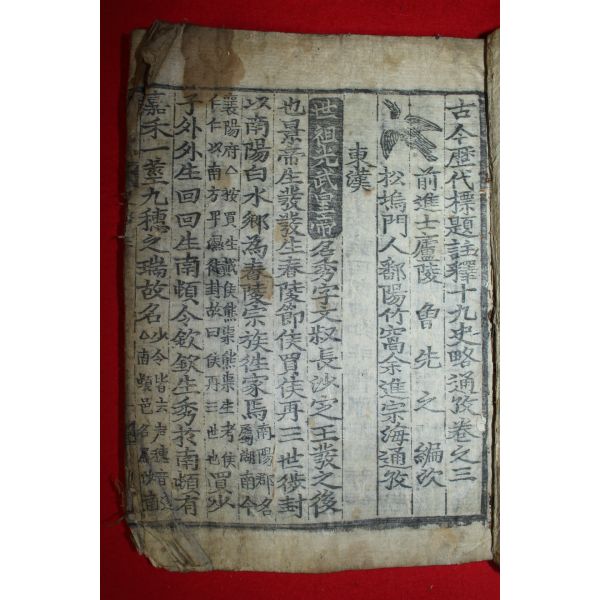 古今歷代標題註釋十九史略通攷卷之三
前進士廬陵 曾先之 編次
松塢門人鄱陽竹窩余進宗海通攷
東漢
世祖光武皇帝名秀字文叔長沙定王發之後
也景帝生發發生春陵節侯買侯再三世徙封
以南陽白水鄕為舂陵宗族徃家焉南陽郡名屬湖南今
襄陽府△按買生戴侯熊渠熊渠生考侯
仁仁以南方卑濕徙封故曰侯再三世也買少
子外外生回回生南頓令欽欽生秀於南頓有
嘉禾一莖九穗之瑞故名